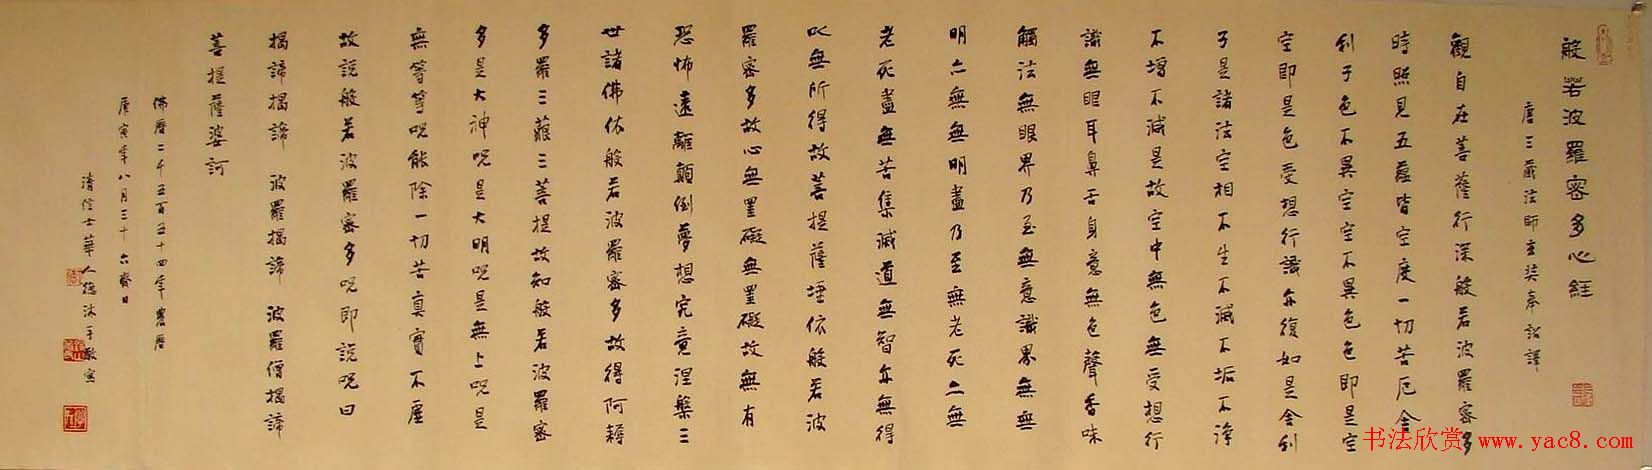 般若波羅密多心經
唐三藏法師玄奘奉詔譯
觀自在菩薩行深般若波羅密多
時照見五蘊皆空度一切苦厄舍
利子色不異空空不異色色即是空
空即是色受想行識亦復如是舍利
子是諸法空相不生不滅不垢不淨
不增不減是故空中無色無受想行
識無眼耳鼻舌身意無色聲香味
觸法無眼界乃至無意識界無無
明亦無無明盡乃至無老死亦無
老死盡無苦集滅道無智亦無得
以無所得故菩提薩埵依般若波
羅密多故心無罣礙無罣礙故無有
恐怖遠離顛倒夢想究竟涅槃三
世諸佛依般若波羅密多故得阿耨
多羅三藐三菩提故知般若波羅密
多是大神咒是大明咒是無上咒是
無等等咒能除一切苦真實不虛
故說般若波羅密多咒即說咒曰
揭諦揭諦 波羅揭諦 波羅僧揭諦
菩提薩婆訶
佛曆二千五百五十四年農曆
庚寅年八月三十六齋日
清信士華人德沐手敬寫
书法欣赏 www.yac8.com